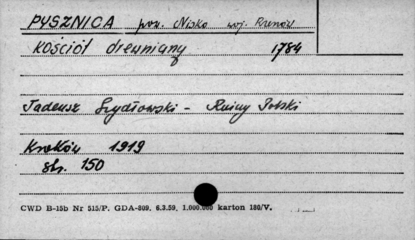 PYSZNICA pow. Nisko woj. Rzeszów
Kościół drewniany 1784
Tadeusz Szydłowski - Ruiny Polski
Kraków 1919
str. 150
CWD B-15b Nr 515/P. GDA-809, 6.3.59, 1.000.000 karton 180/V.